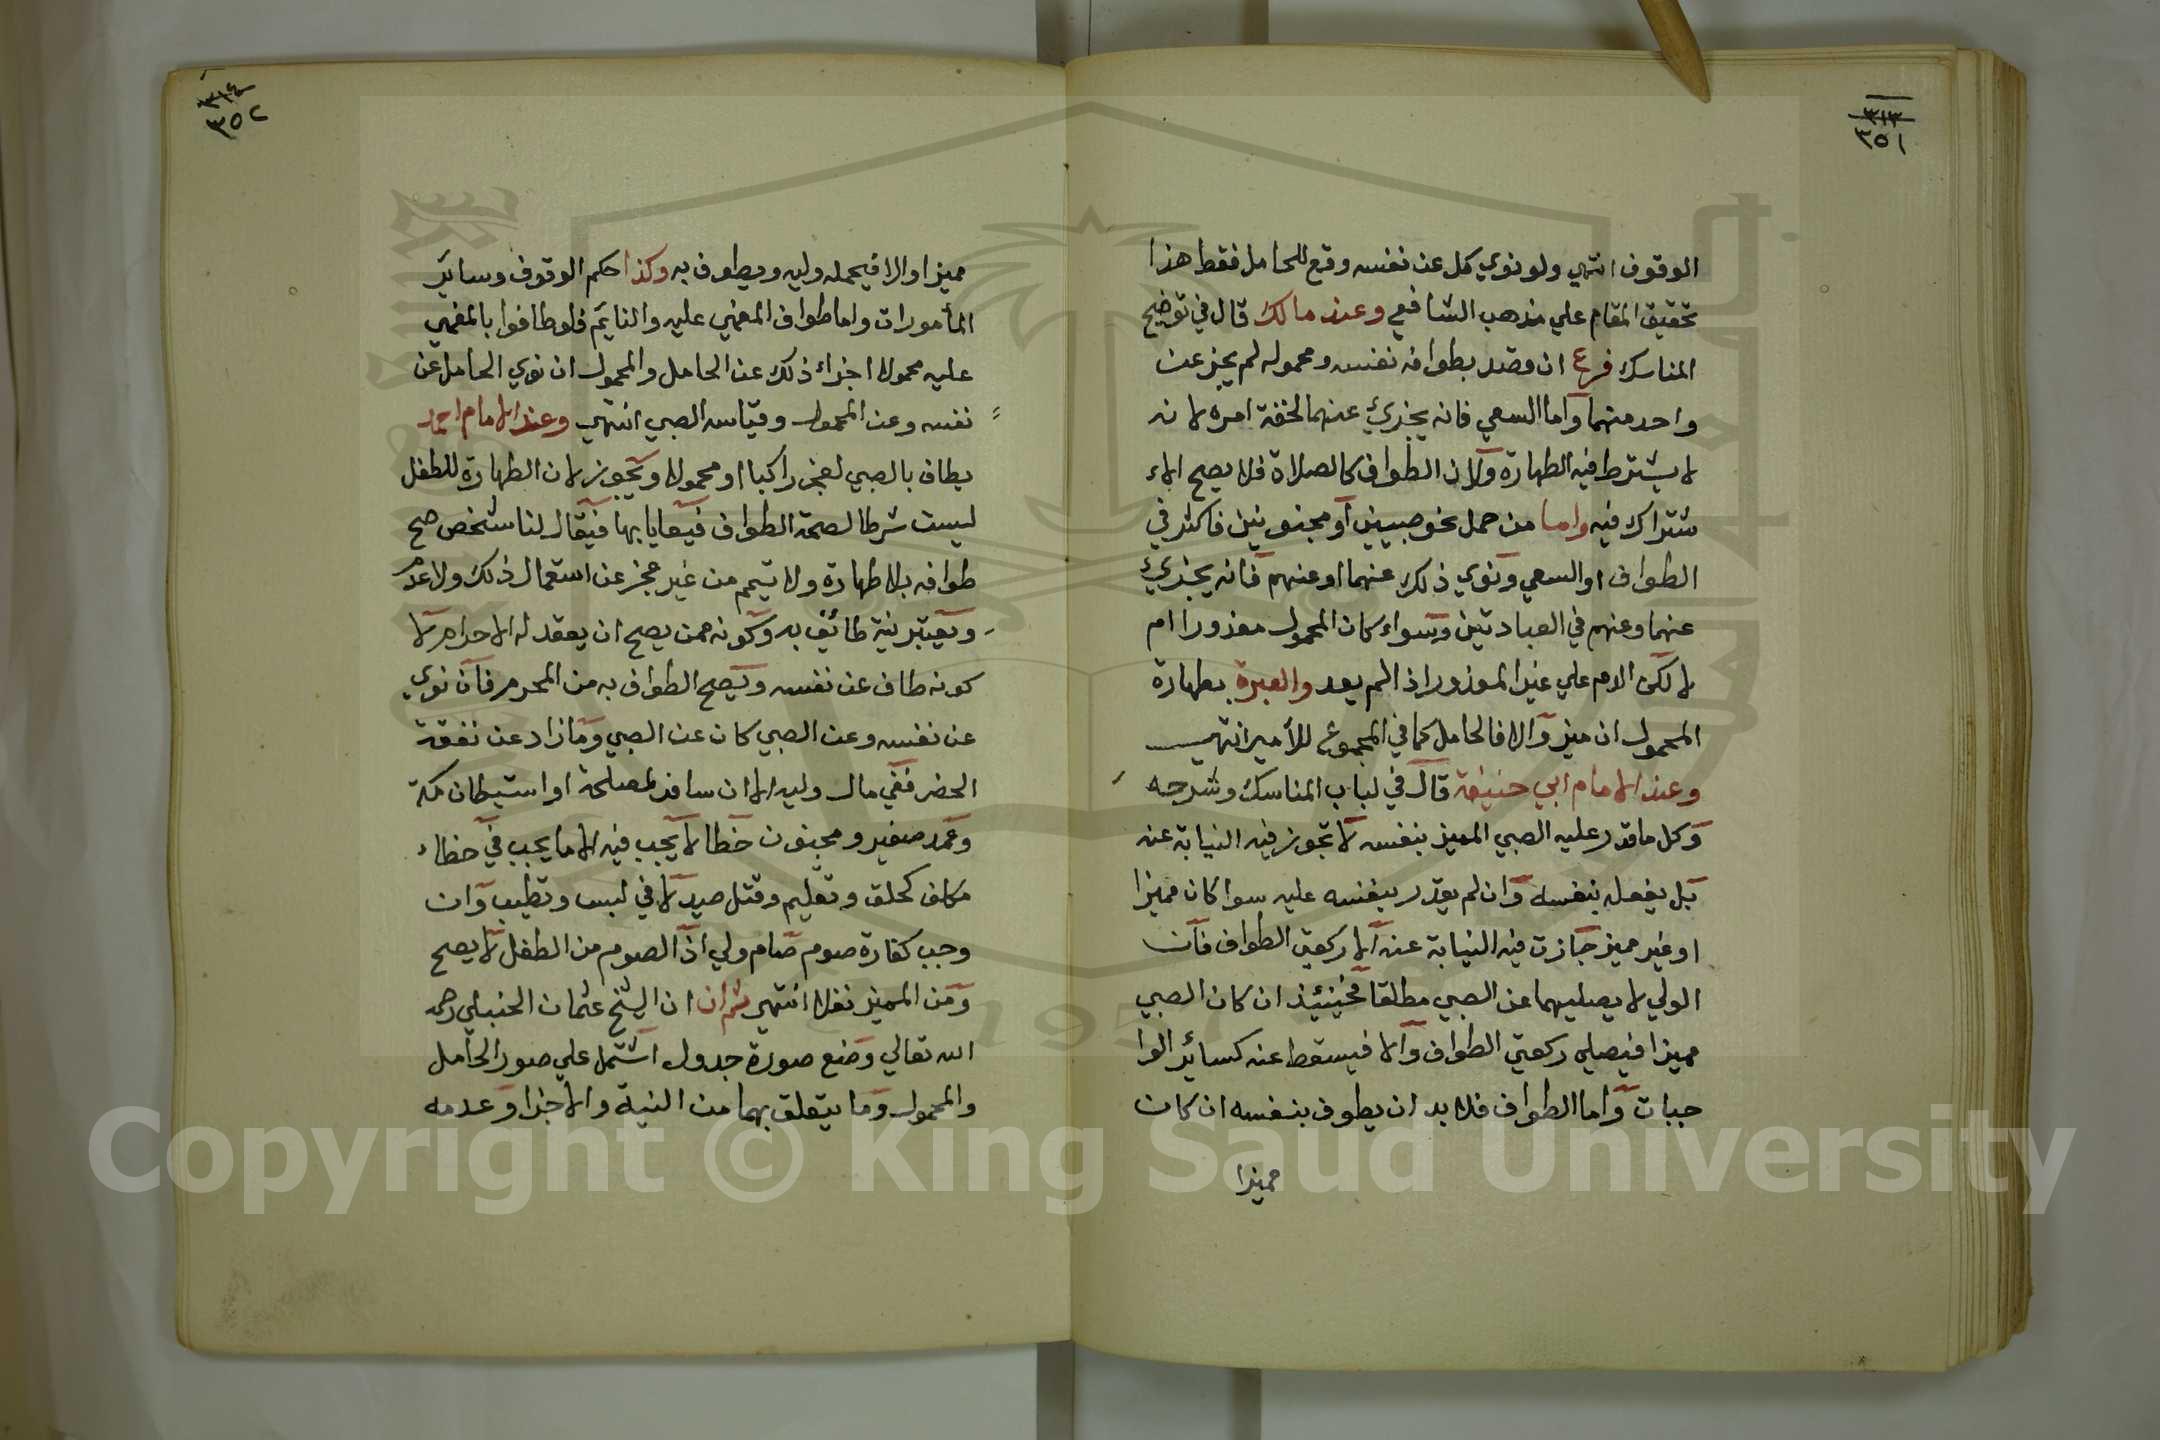 ٣١٣
٣٥١
الوقوف انتهي ولو نوي كل عن نفسه وقع للحامل فقط هذا
تحقيق المقام علي مذهب الشافعي وعند مالك قال في توضيح
المناسك فرع ان قصد بطوافه نفسه ومحموله لم يجز عن
واحد منهما واما السعي فانه يجزيء عنهما لخفة امره لانه
لا يشترط فيه الطهارة ولان الطواف كالصلاة فلا يصح الاء
شتراك فيه واما من حمل نحو صبيين او مجنونين فاكثر في
الطواف او السعي ونوي ذلك عنهما او عنهم فانه يجزيء
عنهما وعنهم في العبادتين وسواء كان المحمول معذورا ام
لا لكن الدم علي غير المعذور اذا لم يعد والعبرة بطهارة
المحمول ان ميز والا فالحامل كما في المجموع للأمير انتهي
وعند الامام ابي حنيفة قال في لباب المناسك وشرحه
وكل ما قدر عليه الصبي المميز بنفسه لا تجوز فيه النيابة عنه
بل يفعله بنفسه وان لم يقدر بنفسه عليه سوا كان مميزا
او غير مميز جازت فيه النيابة عنه الا ركعتي الطواف فان
الولي لا يصليهما عن الصبي مطلقا فحينئذ ان كان الصبي
مميزا فيصلي ركعتي الطواف والا فيسقط عنه كسائر الوا
جبات واما الطواف فلا بد ان يطوف بنفسه ان كان
مميزا
٣١٤
٣٥٢
مميزا والا فيحمله وليه ويطوف به وكذا حكم الوقوف وسائر
المأمورات واما طواف المغمي عليه والنايم فلو طافوا بالمغمي
عليه محمولا اجزاء ذلك عن الحامل والمحمول ان نوي الحامل عن
نفسه وعن المحمول وقياسه الصبي انتهي وعند الامام احمد
يطاف بالصبي لعجز راكبا او محمولا ويجوز لان الطهارة للطفل
ليست شرطا لصحة الطواف فيعايا بها فيقال لنا شخص صح
طوافه بلا طهارة ولا تيمم من غير عجز عن استعمال ذلك ولا عدم
ويعتبر نية طائف به وكونه ممن يصح ان يعقد له الاحرام لا
كونه طاف عن نفسه ويصح الطواف به من المحرم فان نوي
عن نفسه وعن الصبي كان عن الصبي وما زاد عن نفقة
الحضر ففي مال وليه الا ان سافر لمصلحة او استيطان مكة
وعمد صغير ومجنون خطا لا يجب فيه الا ما يجب في خطاء
مكلف كحلق وتقليم وقتل صيد لا في لبس وتطيب وان
وجب كفارة صوم صام ولي اذ الصوم من الطفل لا يصح
ومن المميز نفلا انتهي ثم ان ان الشيخ عثمان الحنبلي رحمه
الله تعالي وضع صورة جدول اشتمل علي صور الحامل
والمحمول وما يتعلق بهما من النية والاجزا وعدمه
Copyright © King Saud University
1957